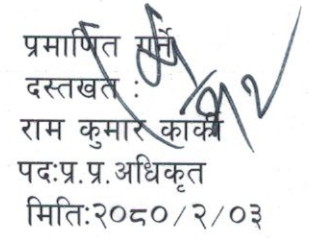 प्रमाणित गर्ने
दस्तखत :
राम कुमार कार्की
पदः प्र.प्र.अधिकृत
मितिः२०८०/२/०३